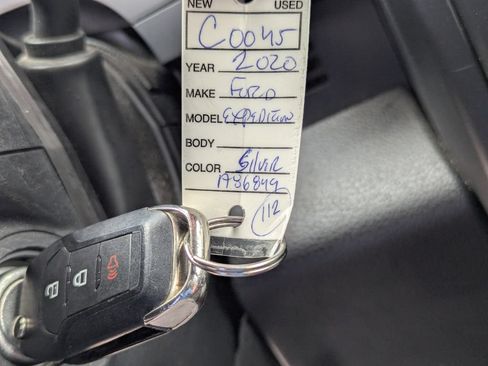 NEW USED
C0045
YEAR 2020
MAKE FORD
MODEL EXPEDITION
BODY
COLOR SILVER
A86849
112